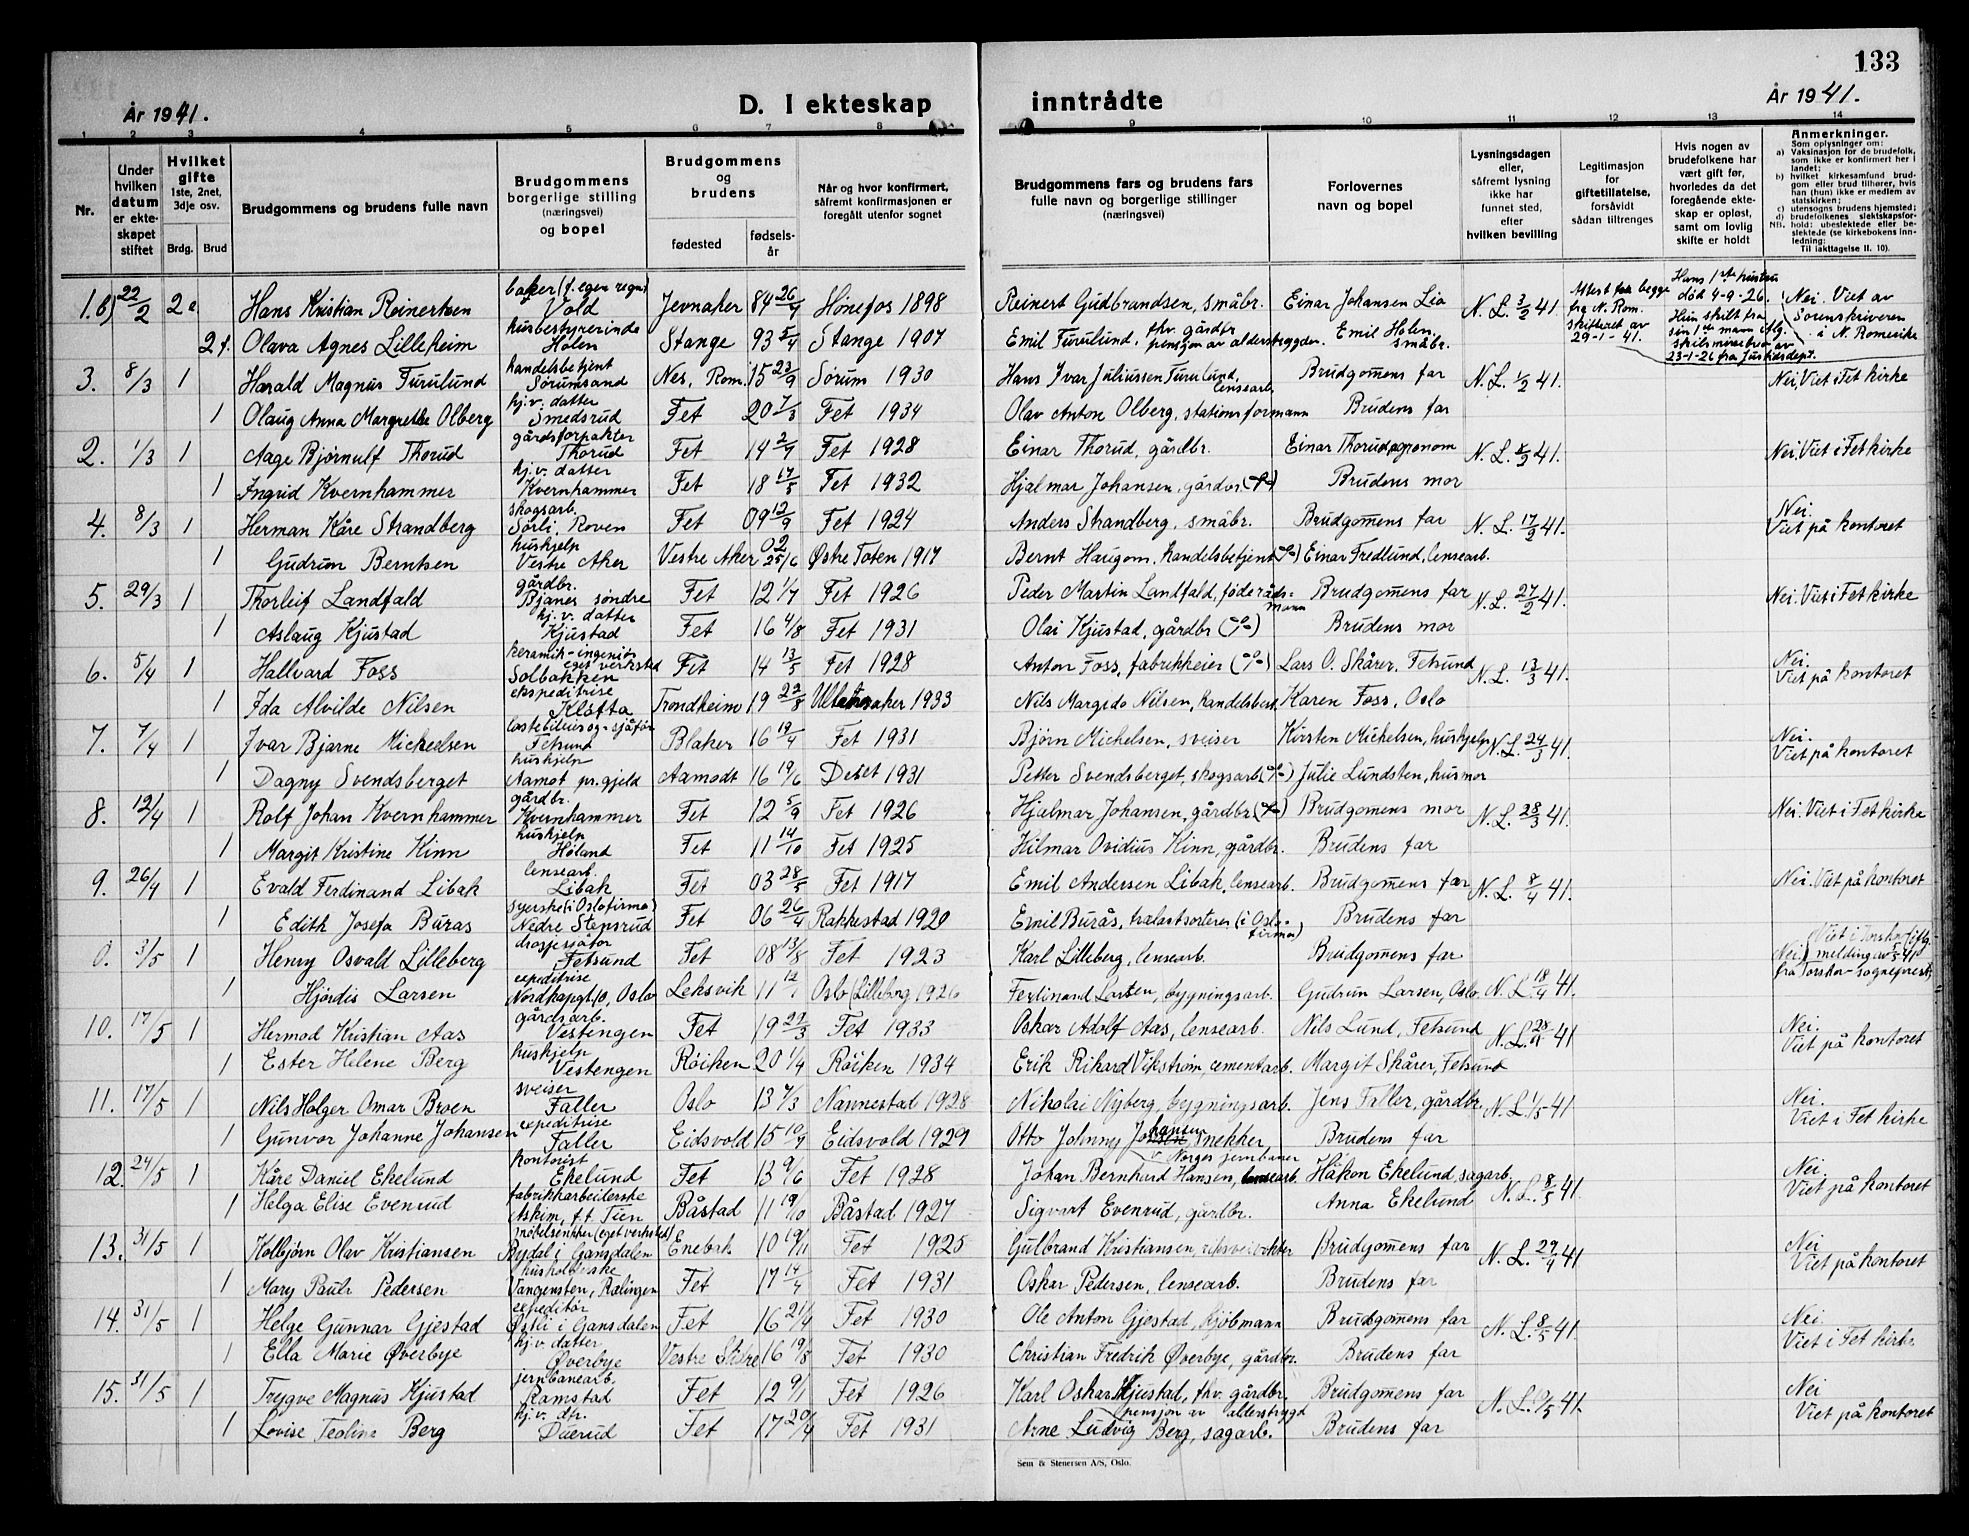 133
År 1941.
D. I ekteskap inntrådte
År 1941.
1 2 3 4 5 6 7 8 9 10 11 12 13 14
Nr.
Under hvilken datum er ekteskapet stiftet
Hvilket gifte 1ste, 2net, 3dje osv.
Brdg. Brud
Brudgommens og brudens fulle navn
Brudgommens borgerlige stilling (næringsvei) og bopel
Brudgommens og brudens
fødested
fødselsår
Når og hvor konfirmert, såfremt konfirmasjonen er foregått utenfor sognet
Brudgommens fars og brudens fars fulle navn og borgerlige stillinger (næringsvei)
Forlovernes navn og bopel
Lysningsdagen eller, såfremt lysning ikke har funnet sted, efter hvilken bevilling
Legitimasjon for giftetillatelse, forsåvidt sådan tiltrenges
Hvis nogen av brudefolkene har vært gift før, hvorledes da det foregående ekteskap er opløst, samt om lovlig skifte er holdt
Anmerkninger.
Som oplysninger om:
a) Vaksinasjon for de brudefolk, som ikke er konfirmert her i landet;
b) hvilket kirkesamfund brudgom eller brud tilhører, hvis han (hun) ikke er medlem av statskirken;
c) utensogns brudens hjemsted;
d) brudefolkenes slektskapsforhold: ubeslektede eller beslektede (se kirkebokens innledning:
NB. Til iakttagelse II. 10).
22/2 2e Hans Kristian Reinertsen baker (f. egen regn) Vold Jevnaker 84 26/4 Hønefos 1898 Reinert Gudbrandsen, småbr. Einar Johansen Lia N. L. 3/2 41. Attest fra begge fra N. Rom. skifterett av 29-1-41. Hans 1ste hustru død 4-9-26. Nei. Viet av Sorenskriveren i N. Romerike
2t. Olava Agnes Lilleheim husbestyrerinde Holen Stange 93 5/4 Stange 1907 Emil Furulund, fhv. gårdbr pensjon av alderstrygden Emil Holen, småbr. Hun skilt fra sin 1ste mann iflg. skilsmissebrev av 23-1-26 fra Justisdept.
3. 8/3 1 Harald Magnus Furulund handelsbetjent Sørumsand Nes, Rom. 15 23/9 Sørum 1930 Hans Ivar Juliussen Furulund, lensearb. Brudgomens far N. L. 1/2 41. Nei, Viet i Fet kirke
1 Olaug Anna Margrethe Olberg hj.v. datter Smedsrud Fet 20 7/3 Fet 1934 Olav Anton Olberg, stationsformann Brudens far
2. 1/3 1 Aage Bjørnulf Thorud gårdsforpakter Thorud Fet 14 2/7 Fet 1928 Einar Thorud, gårdbr. Einar Thorud agronom N. L. 41. Nei. Viet i Fet kirke
1 Ingrid Kvernhammer hj.v. datter Kvernhammer Fet 18 17/5 Fet 1932 Hjalmar Johansen, gårdbr Brudens mor
4. 8/3 1 Herman Kåre Strandberg skogsarb. Sørli, Roven Fet 09 12/9 Fet 1924 Anders Strandberg, småbr. Brudgomens far N. L. 17/2 41. Nei. Viet på kontoret
1 Gudrun Berntsen hushjelp Vestre Aker Vestre Aker 02 25/6 Østre Toten 1917 Bernt Haugom, handelsbetjent Einar Fredlund, lensearb.
5. 29/3 1 Thorleif Landfald gårdbr. Bjanes søndre Fet 12 1/7 Fet 1926 Peder Martin Landfald, føderådsmann Brudgomens far N. L. 27/2 41. Nei. Viet i Fet kirke
1 Aslaug Kjustad hj.v. datter Kjustad Fet 16 4/8 Fet 1931 Olai Kjustad, gårdbr Brudens mor
6. 5/4 1 Hallvard Foss keramik-ingeniør eget verksted Solbakken Fet 14 13/5 Fet 1928 Anton Foss, fabrikkeier Lars O. Skårer, Fetsund N. L. 13/3 41. Nei. Viet på kontoret
1 Ida Alvilde Nilsen ekspeditrise Kløfta Trondheim 19 22/8 Ullensaker 1933 Nils Margido Nilsen, handelsbest. Karen Foss, Oslo
7. 7/4 1 Ivar Bjarne Michelsen lastebileier og -sjåfør Fetsund Blaker 16 19/4 Fet 1931 Bjørn Michelsen, sveiser Kirsten Michelsen, hushjelp N. L. 24/3 41. Nei. Viet på kontoret
1 Dagny Svendsberget hushjelp Aamot pr.gjeld Aamodt 16 19/6 Deset 1931 Petter Svendsberget, skogsarb Julie Lundsten, husmor
8. 12/4 1 Rolf Johan Kvernhammer gårdbr. Kvernhammer Fet 12 5/9 Fet 1926 Hjalmar Johansen, gårdbr Brudgomens mor N. L. 28/3 41. Nei. Viet i Fet kirke
1 Margit Kristine Kinn hushjelp Høland Fet 11 14/10 Fet 1925 Hilmar Ovidius Kinn, gårdbr. Brudens far
9. 26/4 1 Evald Ferdinand Libak lensearb. Libak Fet 03 28/5 Fet 1917 Emil Andersen Libak, lensearb. Brudgomens far N. L. 8/4 41. Nei. Viet på kontoret
1 Edith Josefa Burås syerske (i Oslofirma) Nedre Stensrud Fet 06 26/4 Rakkestad 1920 Emil Burås, trelastsorterer (i Oslofirma) Brudens far
0. 3/5 1 Henry Osvald Lilleberg drosjesjåfør Fetsund Fet 08 13/8 Fet 1923 Karl Lilleberg, lensearb. Brudgomens far Nei. Viet i Torshov (iflg. melding av 5/5-41 fra Torshov sogneprest)
1 Hjørdis Larsen expeditrise Nordkapgt. 10, Oslo Leksvik 11 Oslo (Lilleborg 1926 Ferdinand Larsen, bygningsarb. Gudrun Larsen, Oslo. N. L. 18/4 41.
10. 17/5 1 Hermod Kristian Aas gårdsarb. Vestengen Fet 19 27/3 Fet 1933 Oskar Adolf Aas, lensearb. Nils Lund, Fetsund N. L. 28/4 41 Nei. Viet på kontoret
1 Ester Helene Berg hushjelp Vestengen Røiken 20 1/4 Røiken 1934 Erik Rikard Vikstrøm, cementarb. Margit Skårer, Fetsund
11. 17/5 1 Nils Holger Omar Broen sveiser Faller Oslo 13 7/3 Nannestad 1928 Nikolai Nyberg, bygningsarb. Jens Faller, gårdbr. N. L. 1/5 41 Nei. Viet i Fet kirke
1 Gunvor Johanne Johansen expeditrise Faller Eidsvold 15 10/7 Eidsvold 1929 Otto Johnny Johansen, snekker v Norges jernbaner Brudens far
12. 24/5 1 Kåre Daniel Ekelund kontorist Ekelund Fet 13 9/6 Fet 1928 Johan Bernhard Hansen, lensearb. Håkon Ekelund, sagarb. N. L. 8/5 41. Nei. Viet på kontoret
1 Helga Elise Evenrud fabrikkarbeiderske Askim, f.t. Tien Båstad 11 19/10 Båstad 1927 Sigvart Evenrud, gårdbr. Anna Ekelund
13. 31/5 1 Kolbjørn Olav Kristiansen møbelsnekker (eget verksted) Bydal i Gansdalen Enebak 10 19/11 Fet 1925 Gulbrand Kristiansen, riksveivokter Brudgomens far N. L. 29/4 41 Nei Viet på kontoret
1 Mary Paula Pedersen husholderske Vangensten, Rælingen Fet 17 17/4 Fet 1931 Oskar Pedersen, lensearb. Brudens far
14. 31/5 1 Helge Gunnar Gjestad expeditør Østli i Gansdalen Fet 16 21/4 Fet 1930 Ole Anton Gjestad, kjøbmann Brudgomens far N. L. 8/5 41. Nei. Viet i Fet kirke
1 Ella Marie Øverbye hj.v. datter Øverbye Vestre Slidre 16 19/8 Fet 1930 Christian Fredrik Øverbye, gårdbr. Brudens far
15. 31/5 1 Trygve Magnus Kjustad jernbanearb. Ramstad Fet 12 9/1 Fet 1926 Karl Oskar Kjustad, fhv. gårdbr. pensjon av alderstrygd Brudgomens far N. L. 41. Nei Viet på kontoret
1 Lovise Teoline Berg hj.v. dtr. Duerud Fet 17 20/4 Fet 1931 Arne Ludvig Berg, sagarb. Brudens far
Sem & Stenersen A/S, Oslo.